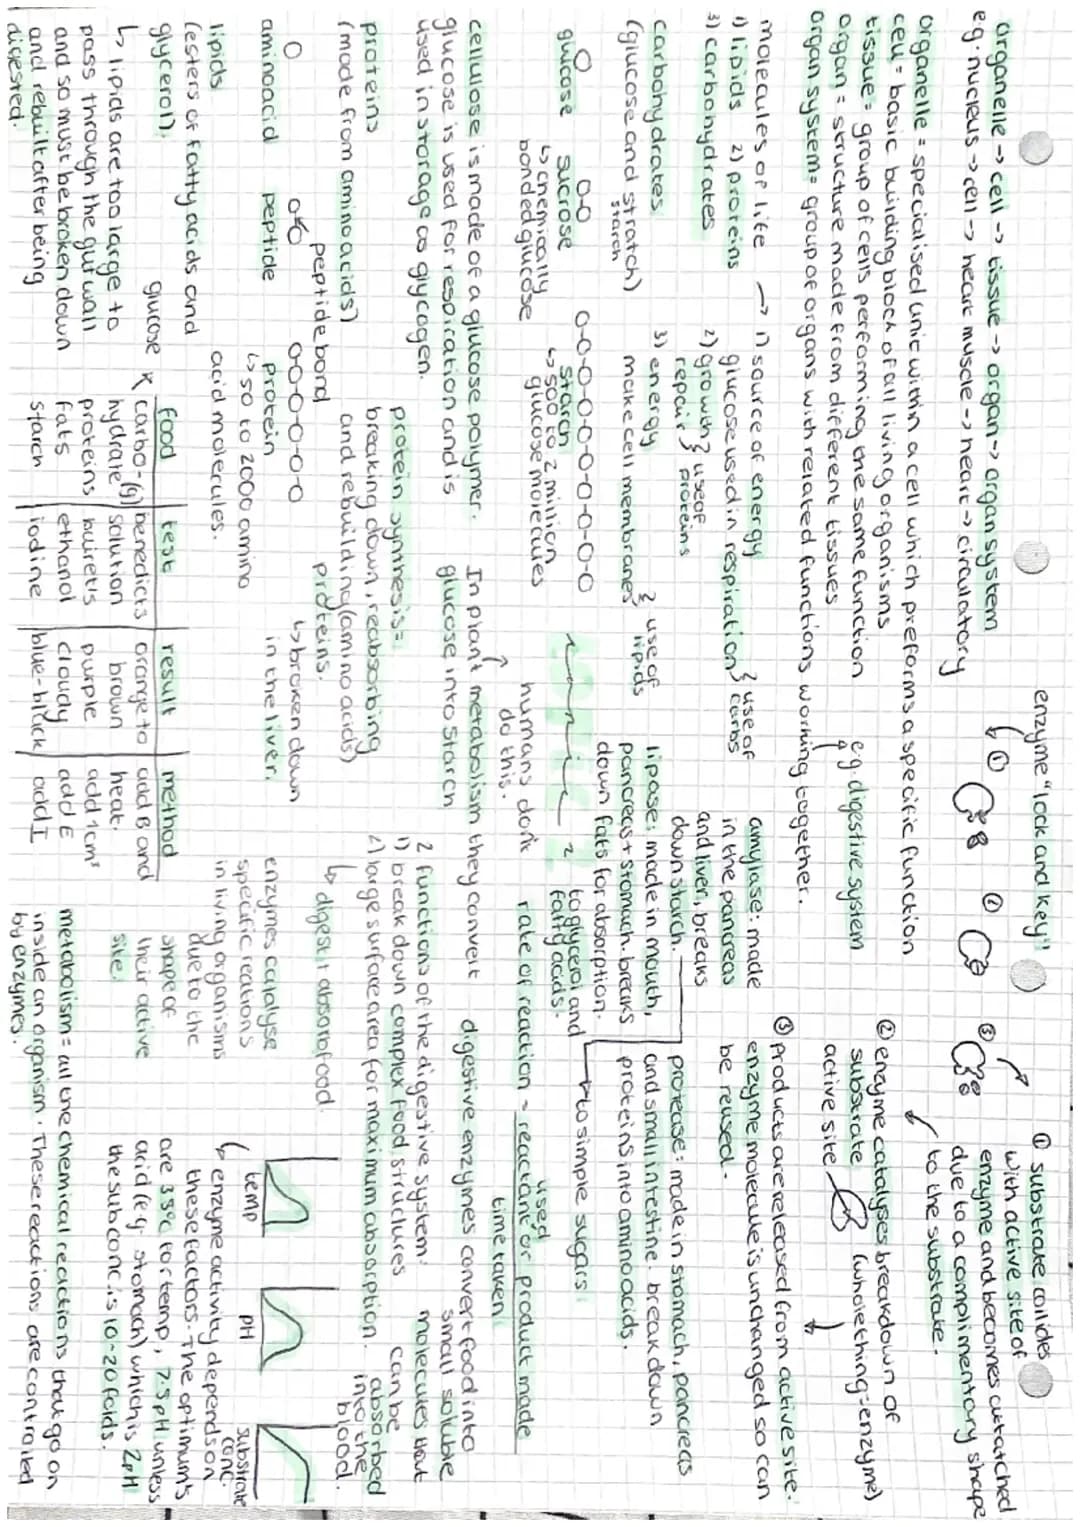 organelle → cell → tissue → organ → organ system
e.g. nucleus → cell → heart muscle → heart → circulatory
organelle = specialised unit within a cell which preforms a specific function
cell = basic building block of all living organisms
tissue = group of cells performing the same function
organ = structure made from different tissues
organ system = group of organs with related functions working together.
e.g. digestive system
molecules of life → 1) source of energy
1) lipids 2) proteins
3) carbohydrates
glucose used in respiration } use of carbs
2) growth } use of
repair } proteins
3) energy
make cell membranes } use of lipids
carbohydrates
(glucose and stratch)
starch
O
glucose
O-O
sucrose
↳ chemically
bonded glucose
O-O-O-O-O-O-O-O-O
starch
↳ 500 to 2 million
glucose molecules
TOPIC 2
humans don't
do this.
cellulose is made of a glucose polymer.
glucose is used for respiration and is
used in storage as glycogen.
In plant metabolism they convert
glucose into starch
proteins
(made from amino acids)
O
aminoacid
peptide
peptide bond
O-O-O-O-O-O
protein
↳ 50 to 2000 amino
acid molecules.
protein synthesis =
breaking down, reabsorbing
and rebuilding (amino acids)
proteins.
↳ broken down
in the liver.
lipids
(esters of fatty acids and
glycerol).
↳ lipids are too large to
pass through the gut wall
and so must be broken down
and rebuilt after being
digested.
glucose
food | test | result | method
carbo-(g) | benedicts | orange to | add B and
hydrate | solution | brown | heat.
proteins | buirett's | purple | add 1cm³
fats | ethanol | cloudy | add E
starch | iodine | blue-black | add I
enzyme "lock and key"
①
②
③
① substrate collides
with active site of
enzyme and becomes attatched
due to a complimentary shape
to the substrate.
② enzyme catalyses breakdown of
substrate (whole thing = enzyme)
active site
③ products are released from active site.
enzyme molecule is unchanged so can
be reused.
amylase: made
in the pancreas
and liver, breaks
down starch.
to simple sugars
lipase: made in mouth,
pancreas + stomach. breaks
down fats for absorption.
to glycerol and
fatty acids.
protease: made in stomach, pancreas
and small intestine. break down
proteins into amino acids.
rate of reaction = reactant used or product made
time taken
2 functions of the digestive system.
1) break down complex food structures
2) large surface area for maximum absorption.
↳ digest + absorb food.
digestive enzymes convert food into
small soluble
molecules that
can be
absorbed
into the
blood.
enzymes catalyse
specific reactions
in living organisms
due to the
shape of
their active
site.
temp
pH
substrate
conc.
↳ enzyme activity depends on
these factors. The optimum's
are 35°c for temp, 7.5pH unless
acid (e.g. stomach) which is 2pH
the sub conc. is 10-20 folds.
metabolism = all the chemical reactions that go on
inside an organism. These reactions are controlled
by enzymes.